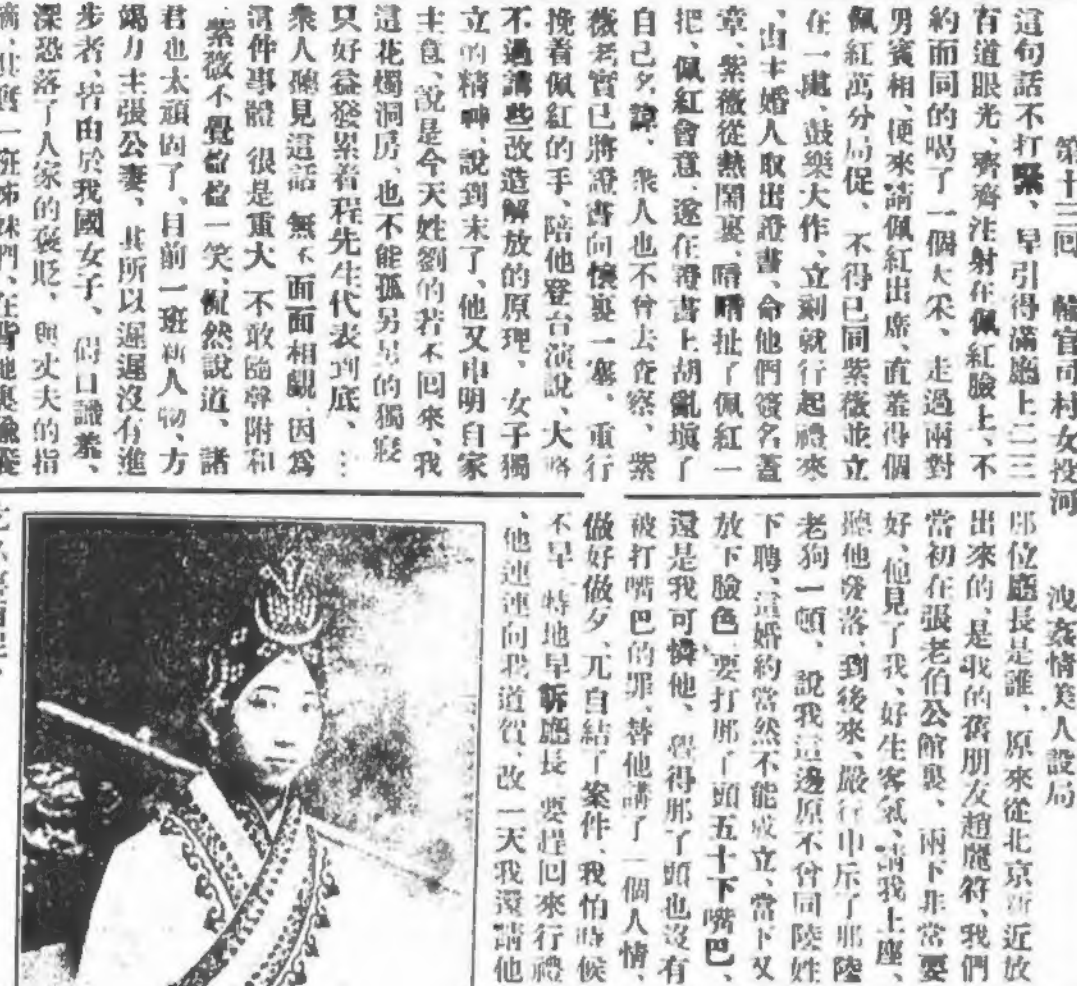 第十三回　輸官司村女投河　洩姦情美人設局
這句話不打緊、早引得滿廳上二三
百道眼光、齊齊注射在佩紅臉上、不
約而同的喝了一個大采、走過兩對
男賓相、便來請佩紅出席、直羞得個
佩紅萬分局促、不得已同紫薇並立
在一處、鼓樂大作、立刻就行起禮來
、由主婚人取出證書、命他們簽名蓋
章、紫薇從熱鬧裏、暗暗扯了佩紅一
把、佩紅會意、遂在證書上胡亂填了
自己名諱、衆人也不曾去查察、紫
薇老實已將證書向懷裏一塞、重行
挽着佩紅的手、陪他登台演說、大略
不過講些改造解放的原理、女子獨
立的精神、說到末了、他又申明自家
主意、說是今天姓劉的若不回來、我
這花燭洞房、也不能孤另另的獨寢
只好益發累着程先生代表到底、…
衆人聽見這話、無不面面相覷、因爲
這件事體、很是重大、不敢隨聲附和
、紫薇不覺嗤嗤一笑、侃然說道、諸
君也太頑固了、目前一班新人物、方
竭力主張公妻、其所以遲遲沒有進
步者、皆由於我國女子、礙口識羞、
深恐落了人家的褒貶、與丈夫的指
摘、其實一班姊妹們、在背地裏
那位廳長是誰、原來從北京新近放
出來的、是我的舊朋友趙魔符、我們
當初在張老伯公館裏、兩下非常要
好、他見了我、好生客氣、請我上座、
聽他發落、到後來、嚴行申斥了那陸
老狗一頓、說我這邊原不曾同陸姓
下聘、這婚約當然不能成立、當下又
放下臉色、要打那丫頭五十下嘴巴、
還是我可憐他、覺得那丫頭也沒有
被打嘴巴的罪、替他講了一個人情、
做好做歹、兀自結了案件、我怕時候
不早、特地早訴廳長、要趕回來行禮
、他連連向我道賀、改一天我還請他